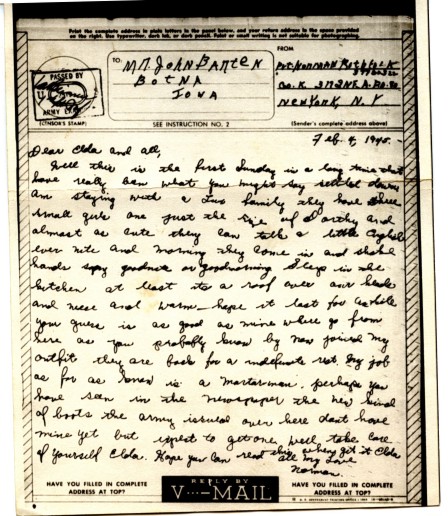 Print the complete address in plain letters in the panel below, and your return address in the space provided
on the right. Use typewriter, dark ink, or dark pencil. Faint or small writing is not suitable for photographing.
PASSED BY
ARMY
(CENSOR'S STAMP)
TO:
Mr. John Barten
Botna
Iowa
SEE INSTRUCTION NO. 2
FROM
Pvt. Norman
Co. K
New York, N.Y
(Sender's complete address above)
Feb. 4, 1945.
Dear Clda and all,
Well this is the first Sunday in a long time that
have really ben what you might say settled down
am staying with a family they have three
small girls one just the size of Dorthy and
almost as cute they can talk a little English
ever nite and morning they come in and shake
hands say goodnite or goodmorning Sleep in the
kitchen at least its a roof over our heads
and nice and warm - hope it last for awhile
your guess is as good as mine where go from
here as you probably know by now joined my
outfit they are back for a indefinate rest. My job
as far as is a mortarman. perhaps you
have seen in the newspaper the new kind
of boots the army issued over here dont have
mine yet but expect to get one, well take care
of yourself Clda. Hope you can read this when get it Clda
all my Love
Norman.
HAVE YOU FILLED IN COMPLETE
ADDRESS AT TOP?
REPLY BY
V···—MAIL
HAVE YOU FILLED IN COMPLETE
ADDRESS AT TOP?